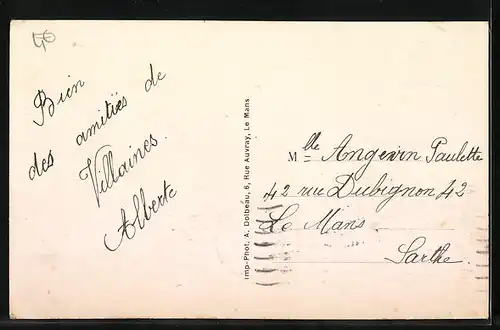 Bien
des amitiés de
Villaines.
Alberte
Imp-Phot. A. Dolbeau, 6, Rue Auvray, Le Mans
Mlle Angevin Paulette
42 rue Dubignon 42
Le Mans
Sarthe.